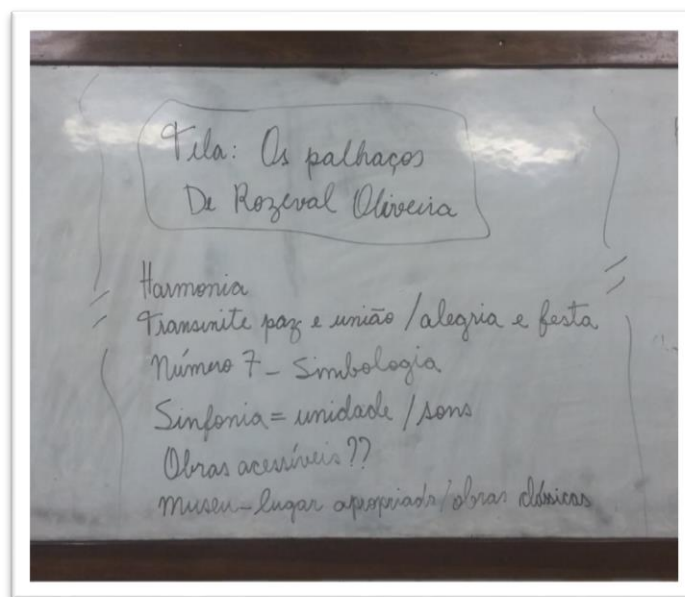 Tela: Os palhaços
De Rozeval Oliveira
Harmonia
Transmite paz e união / alegria e festa
Número 7 - Simbologia
Sinfonia = unidade / sons
Obras acessíveis??
Museu - lugar apropriado / obras clássicas